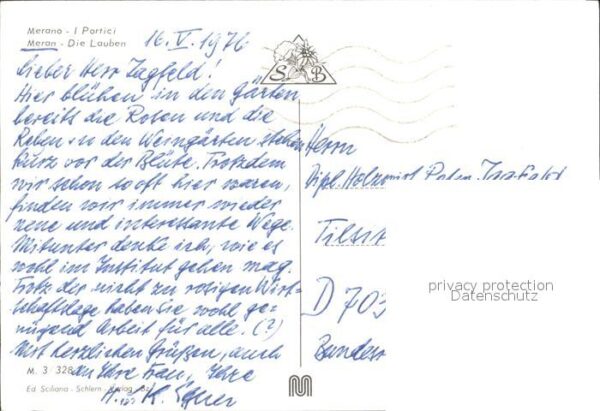 Merano - I Portici
Meran - Die Lauben
16. V. 1976
Lieber Herr Zagfeld!
Hier blühen in den Gärten
bereits die Rosen und die
Reben in den Weingärten stehen
kurz vor der Blüte. Trotzdem
wir schon so oft hier waren,
finden wir immer wieder
neue und interessante Wege.
Mitunter denke ich, wie es
wohl im Institut gehen mag.
Trotz der nicht zu rosigen Wirt-
schaftslage haben Sie wohl ge-
nügend Arbeit für alle. (?)
Mit herzlichen Grüßen, auch
an Ihre Frau, Ihre
H. K.
M. 3 / 328
Ed. Sciliana - Schlern
S B
Herrn
Dipl. Holzwirt
Tilsit
D 703
privacy protection
Datenschutz
Bundes